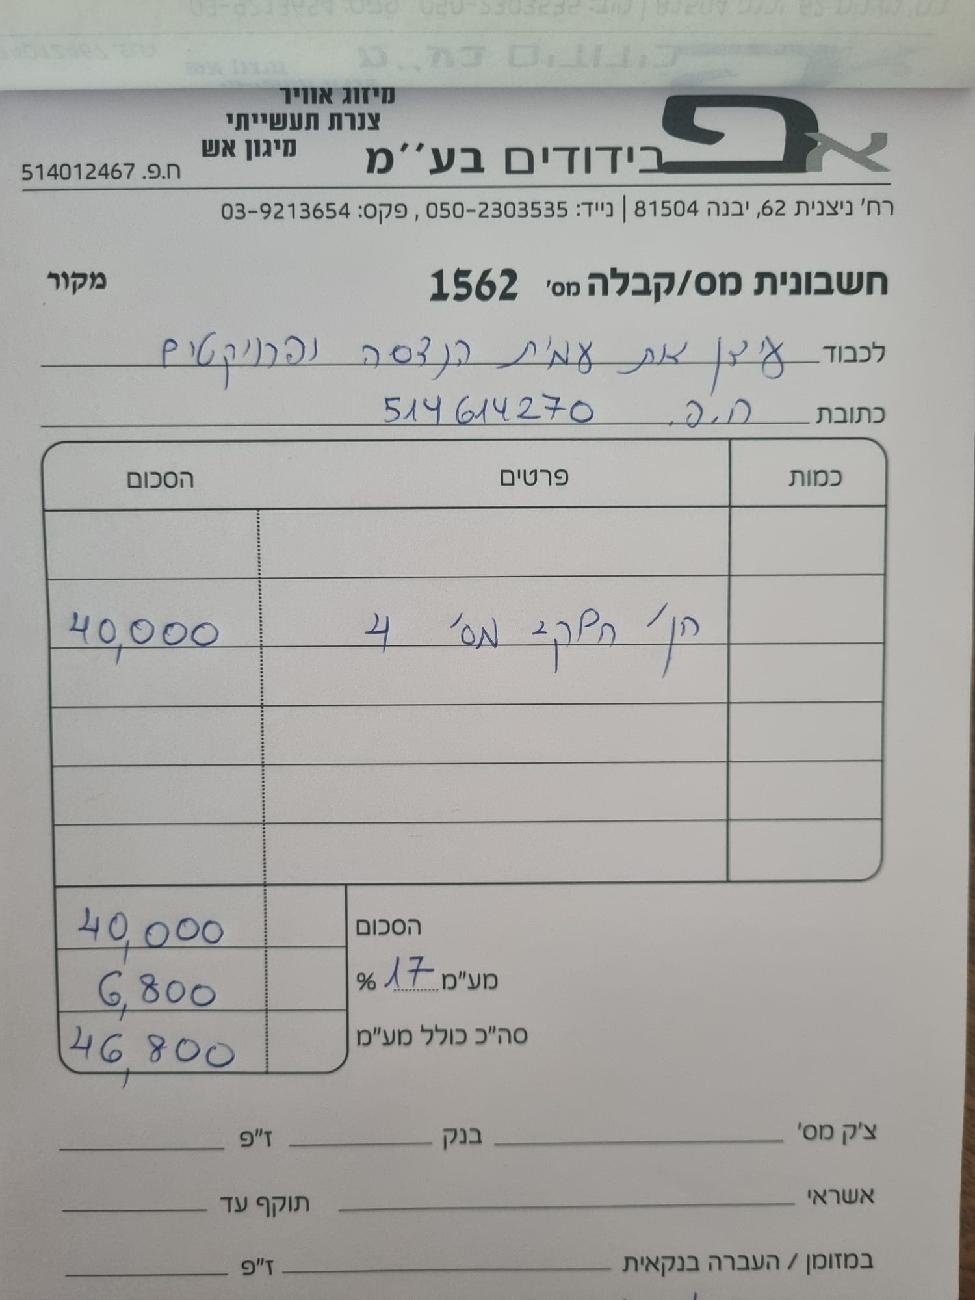 מיזוג אוויר
צנרת תעשייתי
מיגון אש
א פ בידודים בע''מ
ח.פ. 514012467
רח' ניצנית 62, יבנה 81504 | נייד: 050-2303535 , פקס: 03-9213654
חשבונית מס/קבלה מס' 1562
מקור
לכבוד עידן את עמית הנדסה ופרויקטים
כתובת ח.פ. 514614270
כמות פרטים הסכום
חן' חלקי מס' 4 40,000
הסכום 40,000
מע"מ 17 % 6,800
סה"כ כולל מע"מ 46,800
צ'ק מס' בנק ז"פ
אשראי תוקף עד
במזומן / העברה בנקאית ז"פ